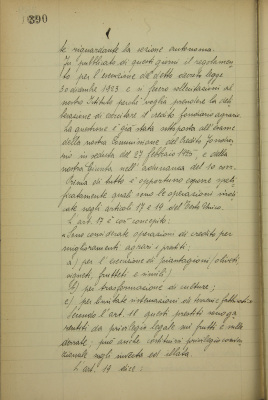 390
te riguardante la sezione autonoma.
Fu pubblicato di questi giorni il regolamen-
to per l'esecuzione del detto decreto legge
30 dicembre 1923 e si fecero sollecitazioni al
nostro Istituto perchè voglia prendere la deli-
berazione di esercitare il credito fondiario agrario.
La questione è già stata sottoposta all'esame
della nostra Commissione del Credito Fondia-
rio in seduta del 27 febbraio 1925, e della
nostra Giunta nell'adunanza del 10 corr.
Prima di tutto è opportuno sapere speci-
ficatamente quali sono le operazioni indi-
cate negli articoli 17 e 19 del Testo Unico.
L'art. 17 è così concepito:
"Sono considerate operazioni di credito per
miglioramenti agrari i prestiti:
a) per l'esecuzione di piantagioni (oliveti
vigneti, frutteti e simili)
b) per trasformazione di culture;
c) per limitate sistemazioni di terreni e fabbricati
Secondo l'art. 18 questi prestiti
da privilegio legale sui frutti e sulle
derrate: può anche costituirsi privilegio conven-
zionale negli invecta et illata.
L'art. 19 dice: